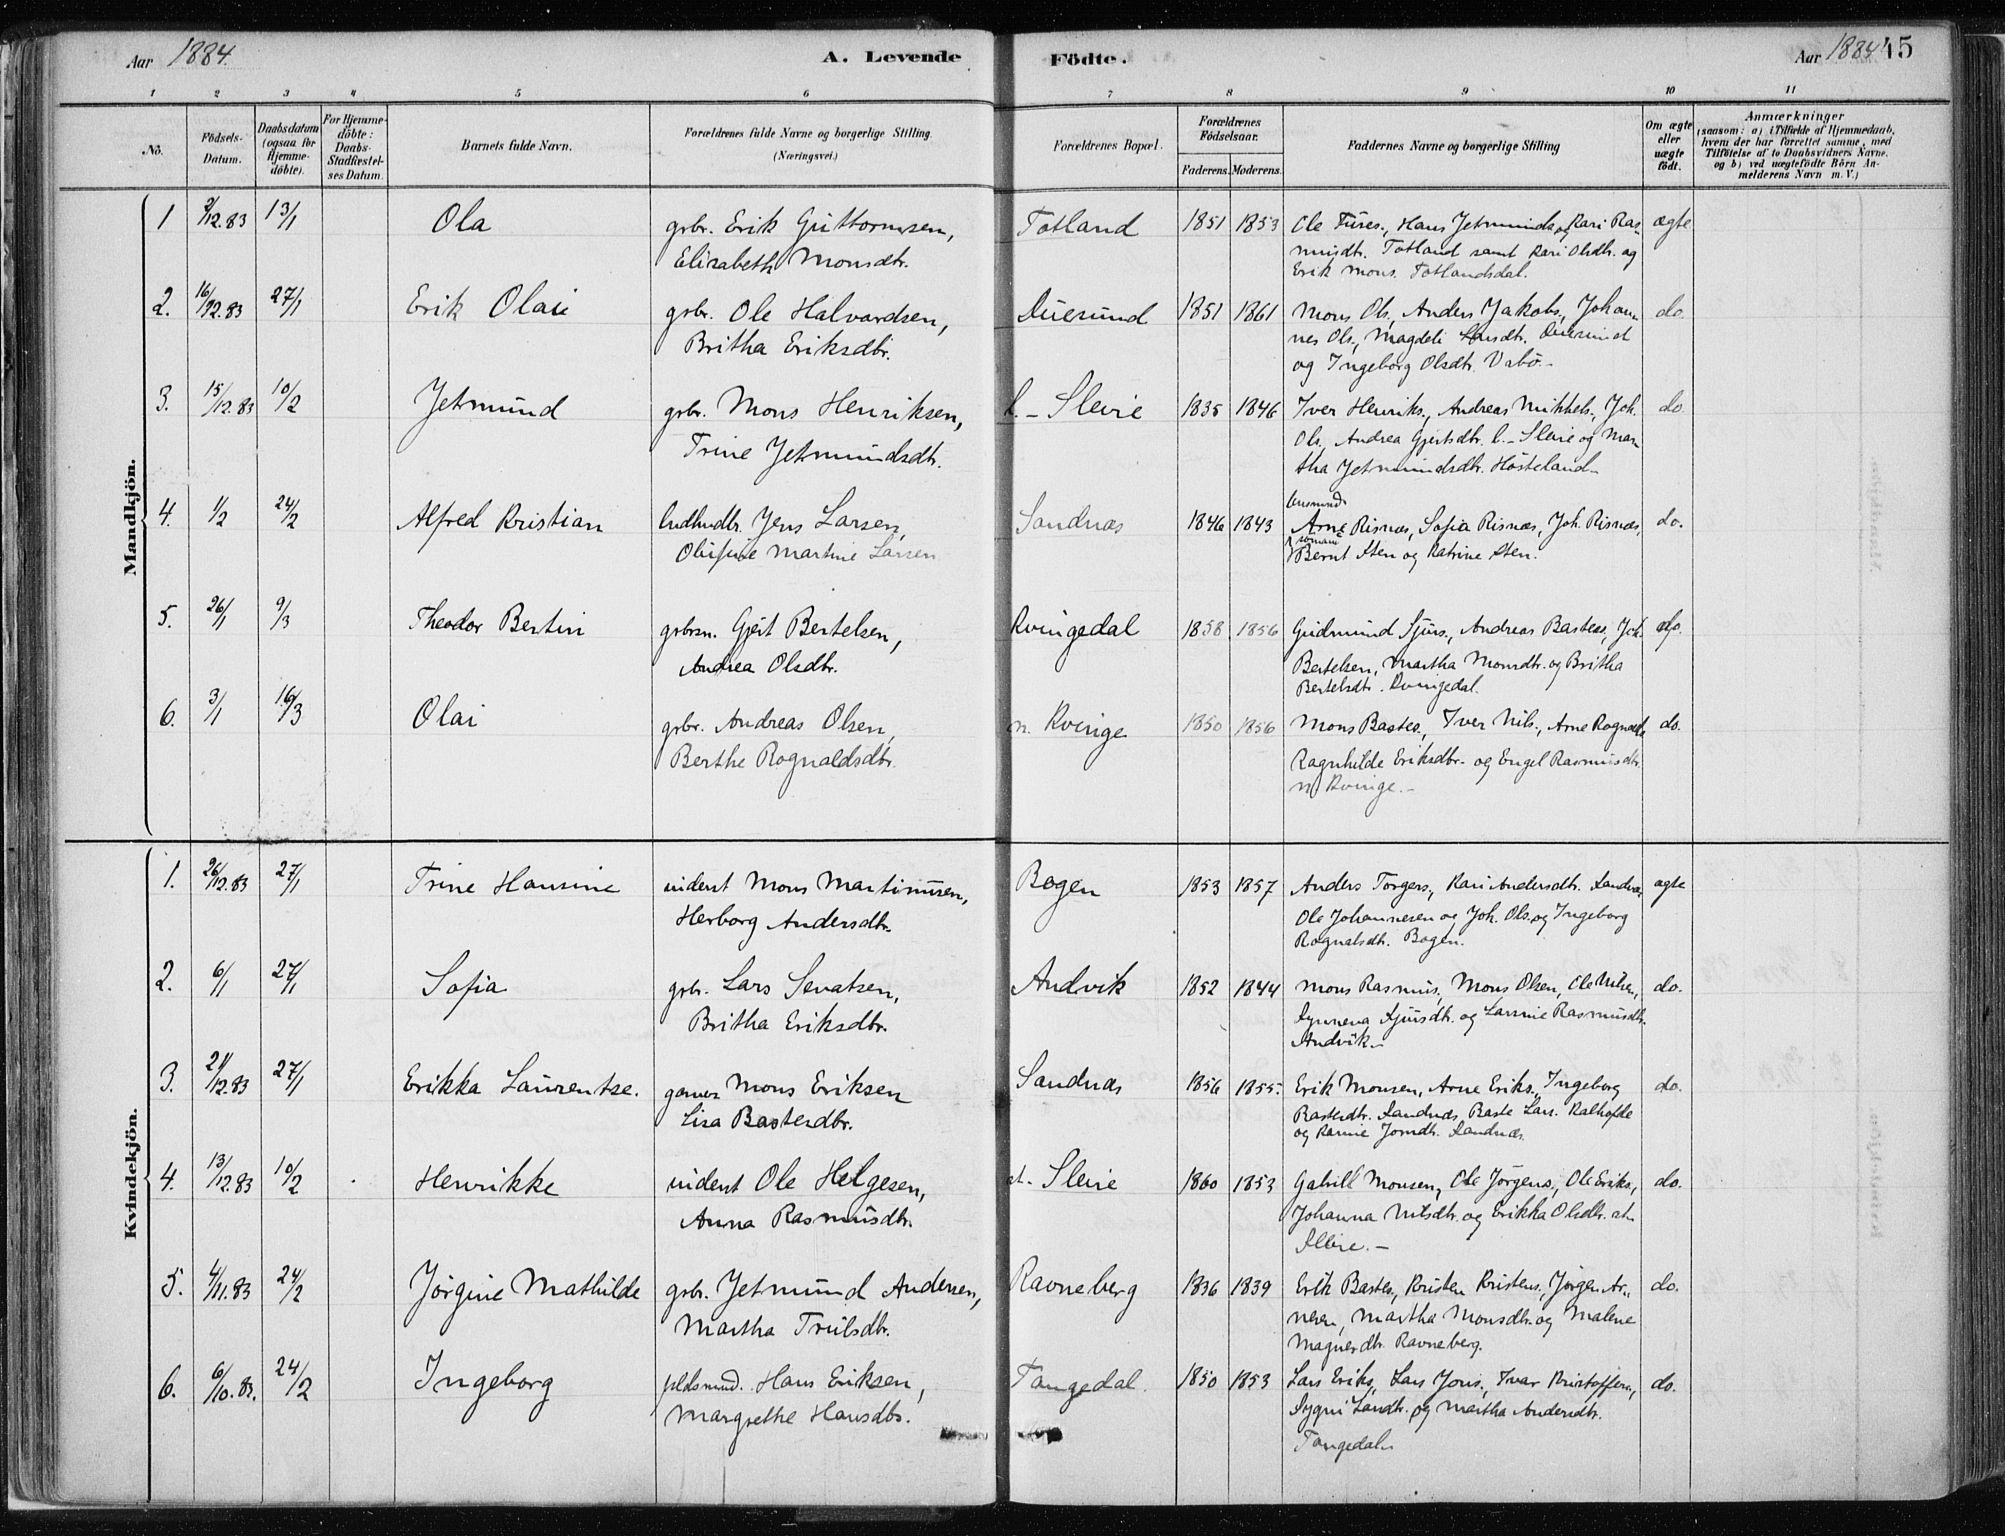 Aar 1884.
A. Levende Födte.
Aar 1884
45
1 2 3 4 5 6 7 8 9 10 11
No.
Födsels-Datum.
Daabsdatum (ogsaa for Hjemme-döbte).
For Hjemme-döbte: Daabs-Stadfæstel-ses Datum.
Barnets fulde Navn.
Forældrenes fulde Navne og borgerlige Stilling. (Næringsvei.)
Forældrenes Bopæl.
Forældrenes Födselsaar.
Faderens. Moderens.
Faddernes Navne og borgerlige Stilling
Om ægte eller uægte födt.
Anmærkninger
(saasom: a) i Tilfælde af Hjemmedaab, hvem der har forrettet samme, med Tilföielse af to Daabsvidners Navne, og b) ved uægtefödte Börn An-melderens Navn m. V.)
Mandkjön.
1 2/12.83 13/1 Ola grbr. Erik Guttormsen, Totland 1851 1853 Ole Fures., Hans Jetmunds og Kari Ras- ægte
Elizabeth Monsdtr. musdt. Totland samt Kari Olsdtr. og
Erik Mons. Totlandsdal.
2. 16/12.83 27/1 Erik Olai grbr. Ole Halvardsen, Duesund 1851 1861 Mons Ols., Anders Jakobs., Johan- do.
Britha Eriksdtr. nes Ols., Magdeli Duesund
og Ingeborg Olsdtr. Vabö.-
3. 15/12.83 10/2 Jetmund grbr. Mons Henriksen, l.- Sleire 1835 1846 Iver Henriks., Andreas Mikkels., Joh. do.
Trine Jetmundsdtr. Ols., Andrea Gjertsdtr. l.- Sleire og Mar-
tha Jetmundsdtr. Hosteland-
4. 1/2 24/2 Alfred Kristian Jens Larsen, Sandnæs 1846 1843 Arne Risnæs, Sofia Risnæs, Joh. Risnæs, do.
Olufine Martine Larsen Bernt Sten og Katrine Sten.
5. 26/1 9/3 Theodor Bertin grbrsn. Gjert Bertelsen, Kvingedal 1858 1856 Gudmund Sjurs., Andreas Bastes., Joh. do.
Andrea Olsdtr. Bertelsen, Martha Monsdtr. og Britha
Bertelsdtr. Kvingedal.
6. 3/1 16/3 Olai grbr. Andreas Olsen, n. Kvinge 1850 1856 Mons Bastes., Iver Nils., Arne Rognalds do.
Berthe Rognaldsdtr. Ragnhilde Eriksdtr. og Engel Rasmusdtr.
n. Kvinge.-
Kvindekjön.
1. 26/12.83 27/1 Trine Hansine inderst Mons Martinusen, Bogen 1853 1857 Anders Torgers., Kari Andersdtr. Sandnæs ægte
Herborg Andersdtr. Ole Johannesen og Joh. Ols. og Ingeborg
Rognalsdtr. Bogen.
2. 6/1 27/1 Sofia grbr. Lars Sevatsen, Andvik 1852 1844 Mons Rasmus., Mons Olsen, Ole Nilsen, do.
Britha Eriksdtr. Synneva Sjursdtr. og Larsine Rasmusdtr.
Andvik.-
3. 21/12.83 27/1 Erikka Laurentse. garver Mons Eriksen Sandnæs 1856 1855. Erik Monsen, Arne Eriks., Ingeborg do.
Lisa Bastesdtr. Bastesdtr. Sandnæs, Baste Lars. Kalhofde
og Karine Jonsdtr. Sandnæs.
4. 13/12.83 10/2 Henrikke inderst Ole Helgesen, st. Sleire 1860 1853 Gabriel Monsen, Ole Jörgens., Ole Eriks., do.
Anna Rasmusdtr. Johanna Nilsdtr. og Erikka Olsdtr. st.
Sleire.-
5. 4/11.83 24/2 Jörgine Mathilde grbr. Jetmund Andersen, Ravneberg 1836 1839 Erik Bastes., Kristen Kristens., Jörgen Ar- do.
Martha Trulsdtr. nesen, Martha Monsdtr. og Malene
Magnesdtr. Ravneberg.
6. 6/10.83. 24/2 Ingeborg pldsmnd. Hans Eriksen, Tangedal. 1850 1853 Lars Eriks., Lars Jons., Ivar Kristoffers., do.
Margrethe Hansdtr. Sygni Larsdtr. og Martha Andersdtr.
Tangedal.